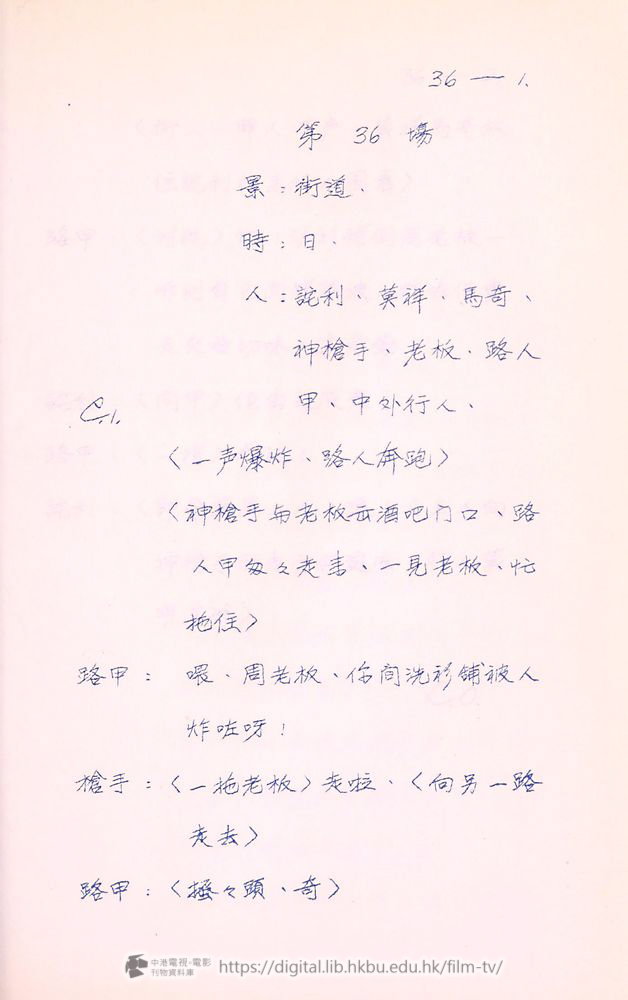 36 — 1.
第 36 場
景：街道、
時：日、
人：詫利、莫祥、馬奇、
神槍手、老板、路人
甲、中外行人、
C.1.
〈一声爆炸、路人奔跑〉
〈神槍手与老板在酒吧门口、路
人甲匆々走来、一見老板、忙
拖住〉
路甲：喂、周老板、你間洗衫舖被人
炸咗呀！
槍手：〈一拖老板〉走啦、〈向另一路
走去〉
路甲：〈搔々頭、奇〉
中港電視·電影
刊物資料庫
https://digital.lib.hkbu.edu.hk/film-tv/